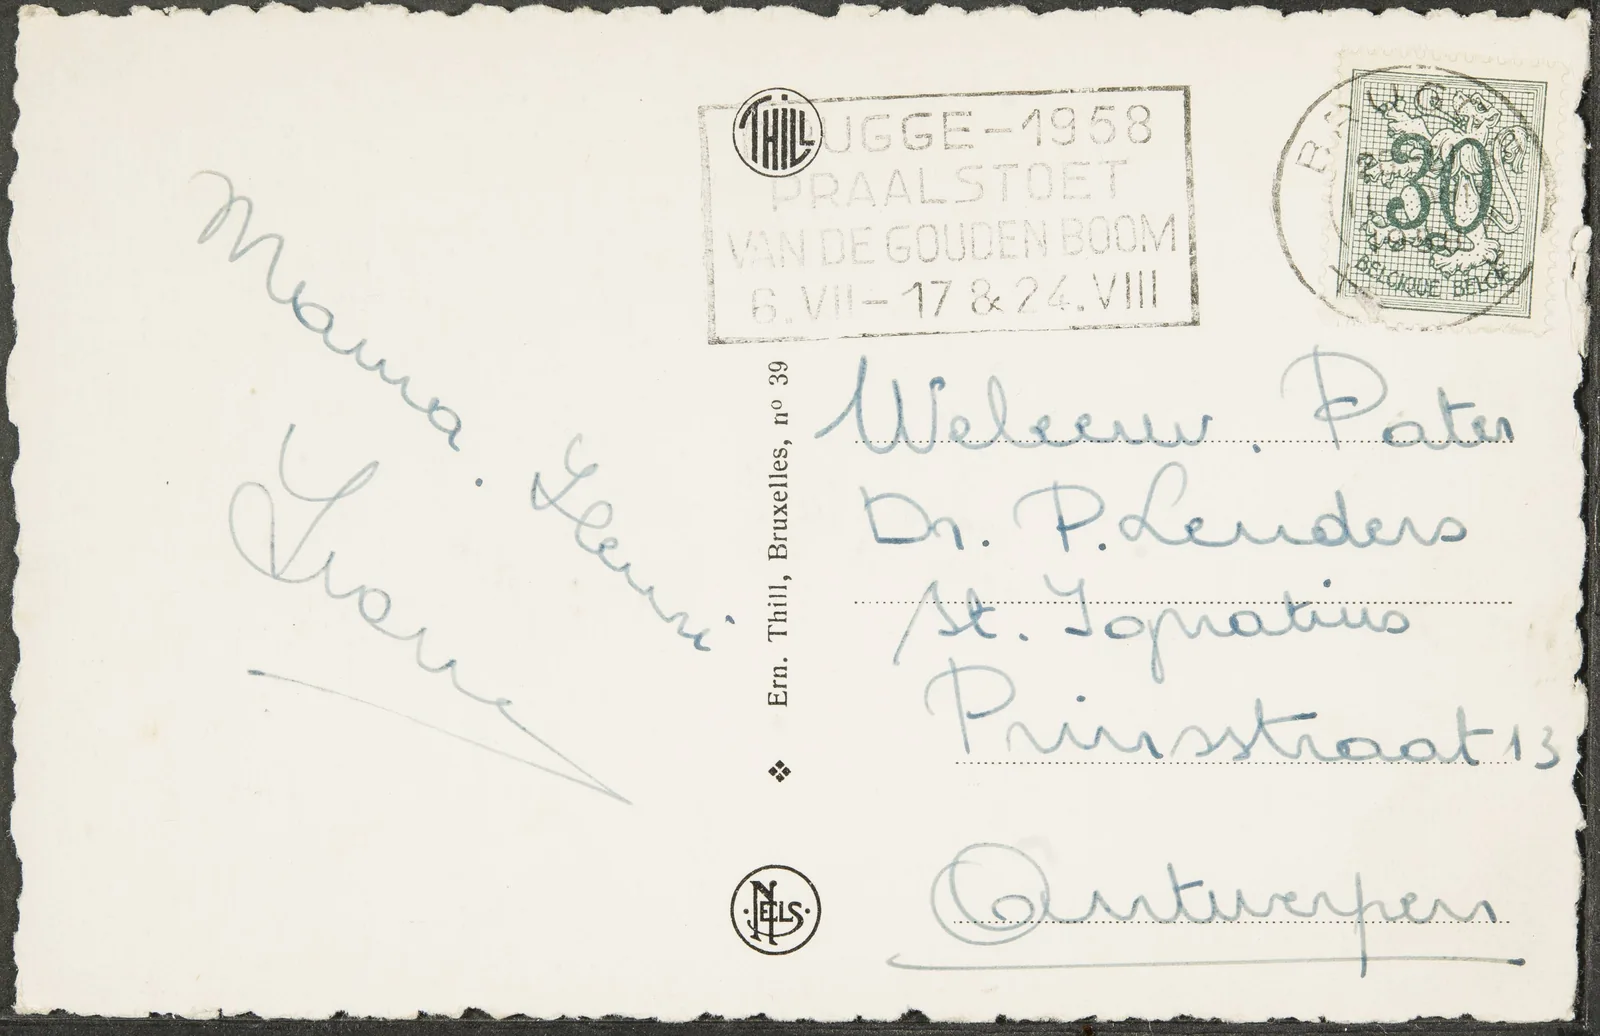 Mama. Henri
Ivonne
THILL
UGGE-1958
PRAALSTOET
VAN DE GOUDEN BOOM
6.VII-17 & 24.VIII
30
BELGIQUE BELGIË
Ern. Thill, Bruxelles, nº 39
NELS
Weleerw. Pater
Dr. P. Lenders
St. Ignatius
Prinsstraat 13
Antwerpen